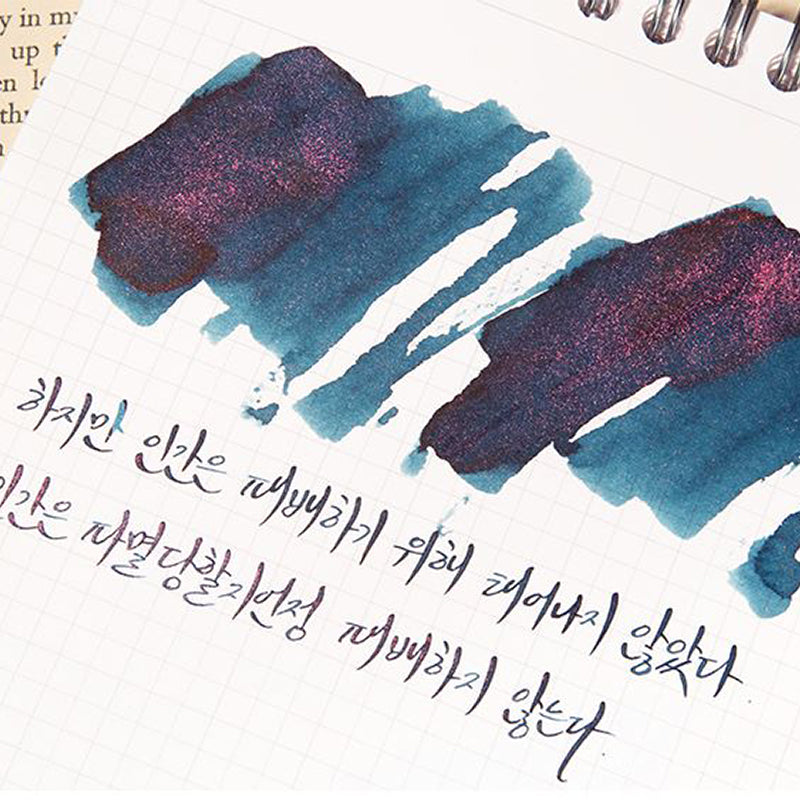 y in my
up
하지만 인간은 패배하기 위해 태어나지 않았다
인간은 파멸당할지언정 패배하지 않는다.